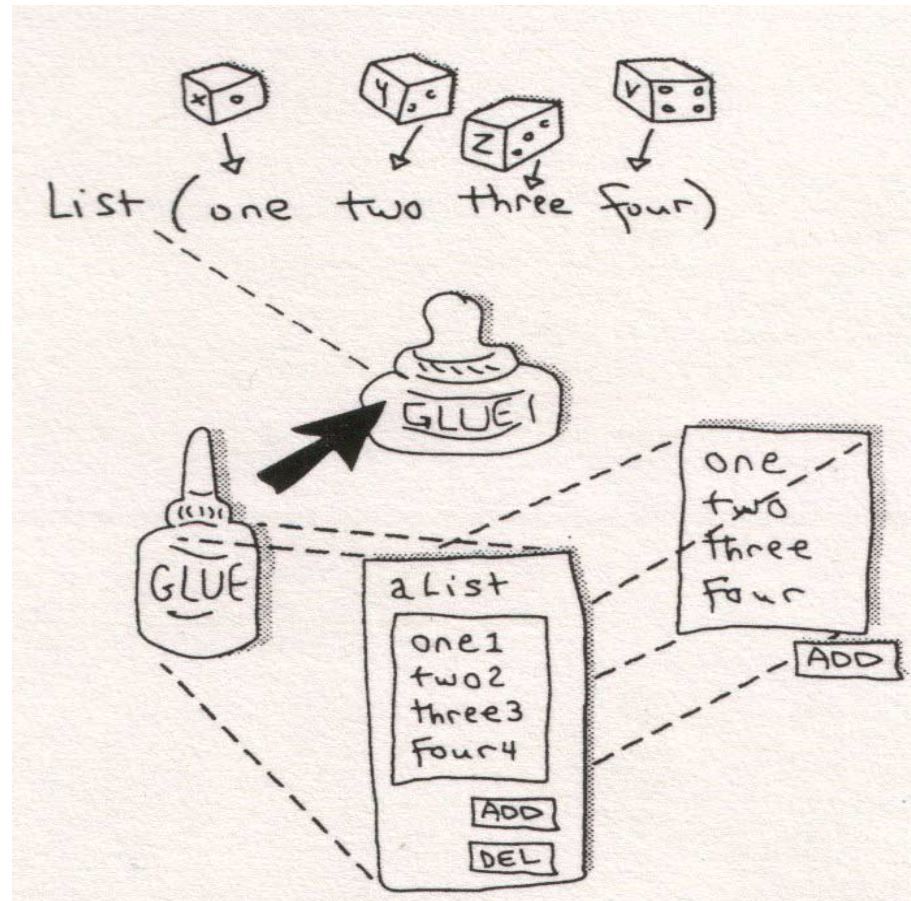 x
y
z
v
List (one two three four)
GLUE 1
GLUE
aList
one1
two2
three3
four4
ADD
DEL
one
two
three
four
ADD